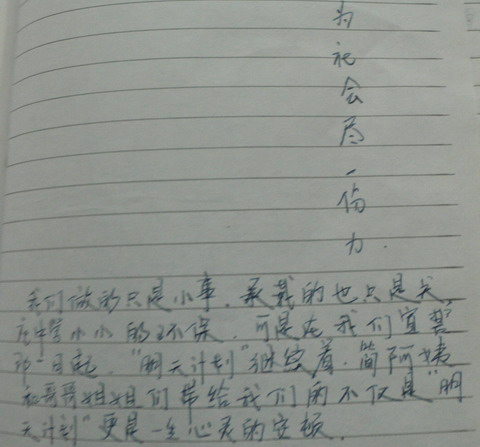 为社会尽一份力.
我们做的只是小事,承载的也只是
中学小小的环保,可是在我们宣誓
那一日起,"明天计划"继续着.简阿姨
和哥哥姐姐们带给我们的不仅是"明
天计划"更是一生心灵的